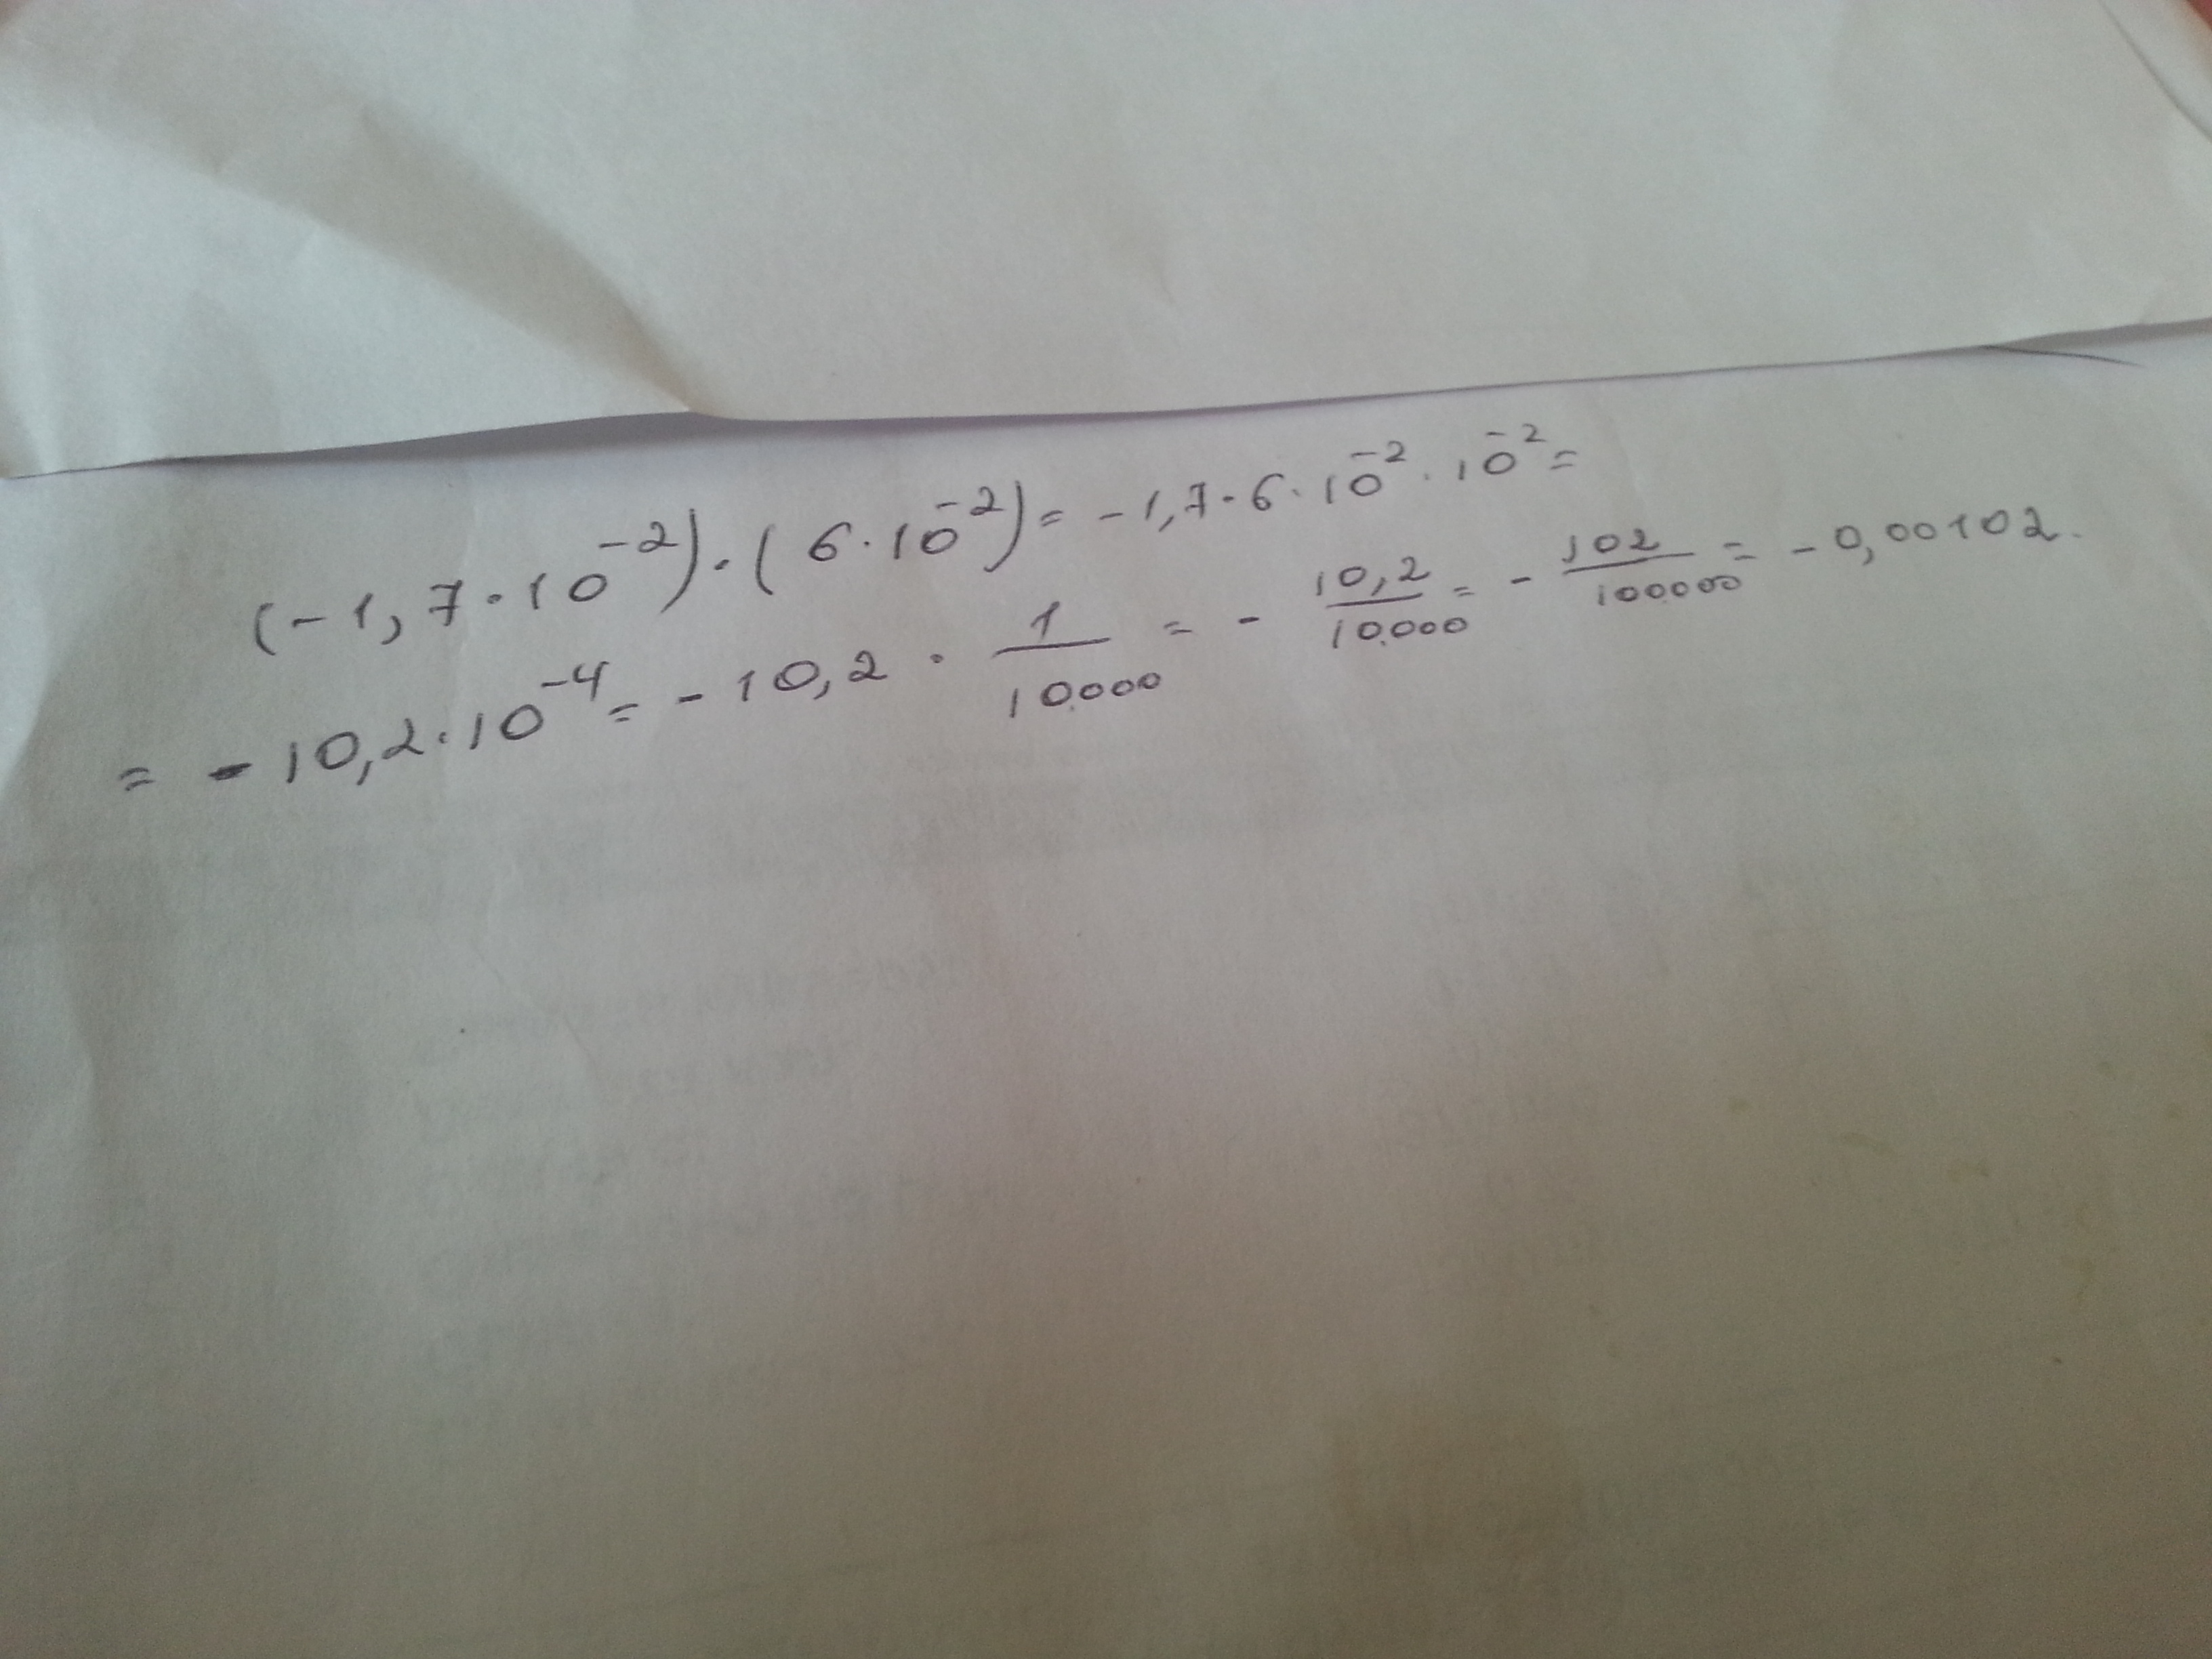 (-1,7·10⁻²)·(6·10⁻²)= -1,7·6·10⁻²·10⁻²=
= -10,2·10⁻⁴= -10,2·1/10.000 = -10,2/10.000 = -102/100.000 = -0,00102.